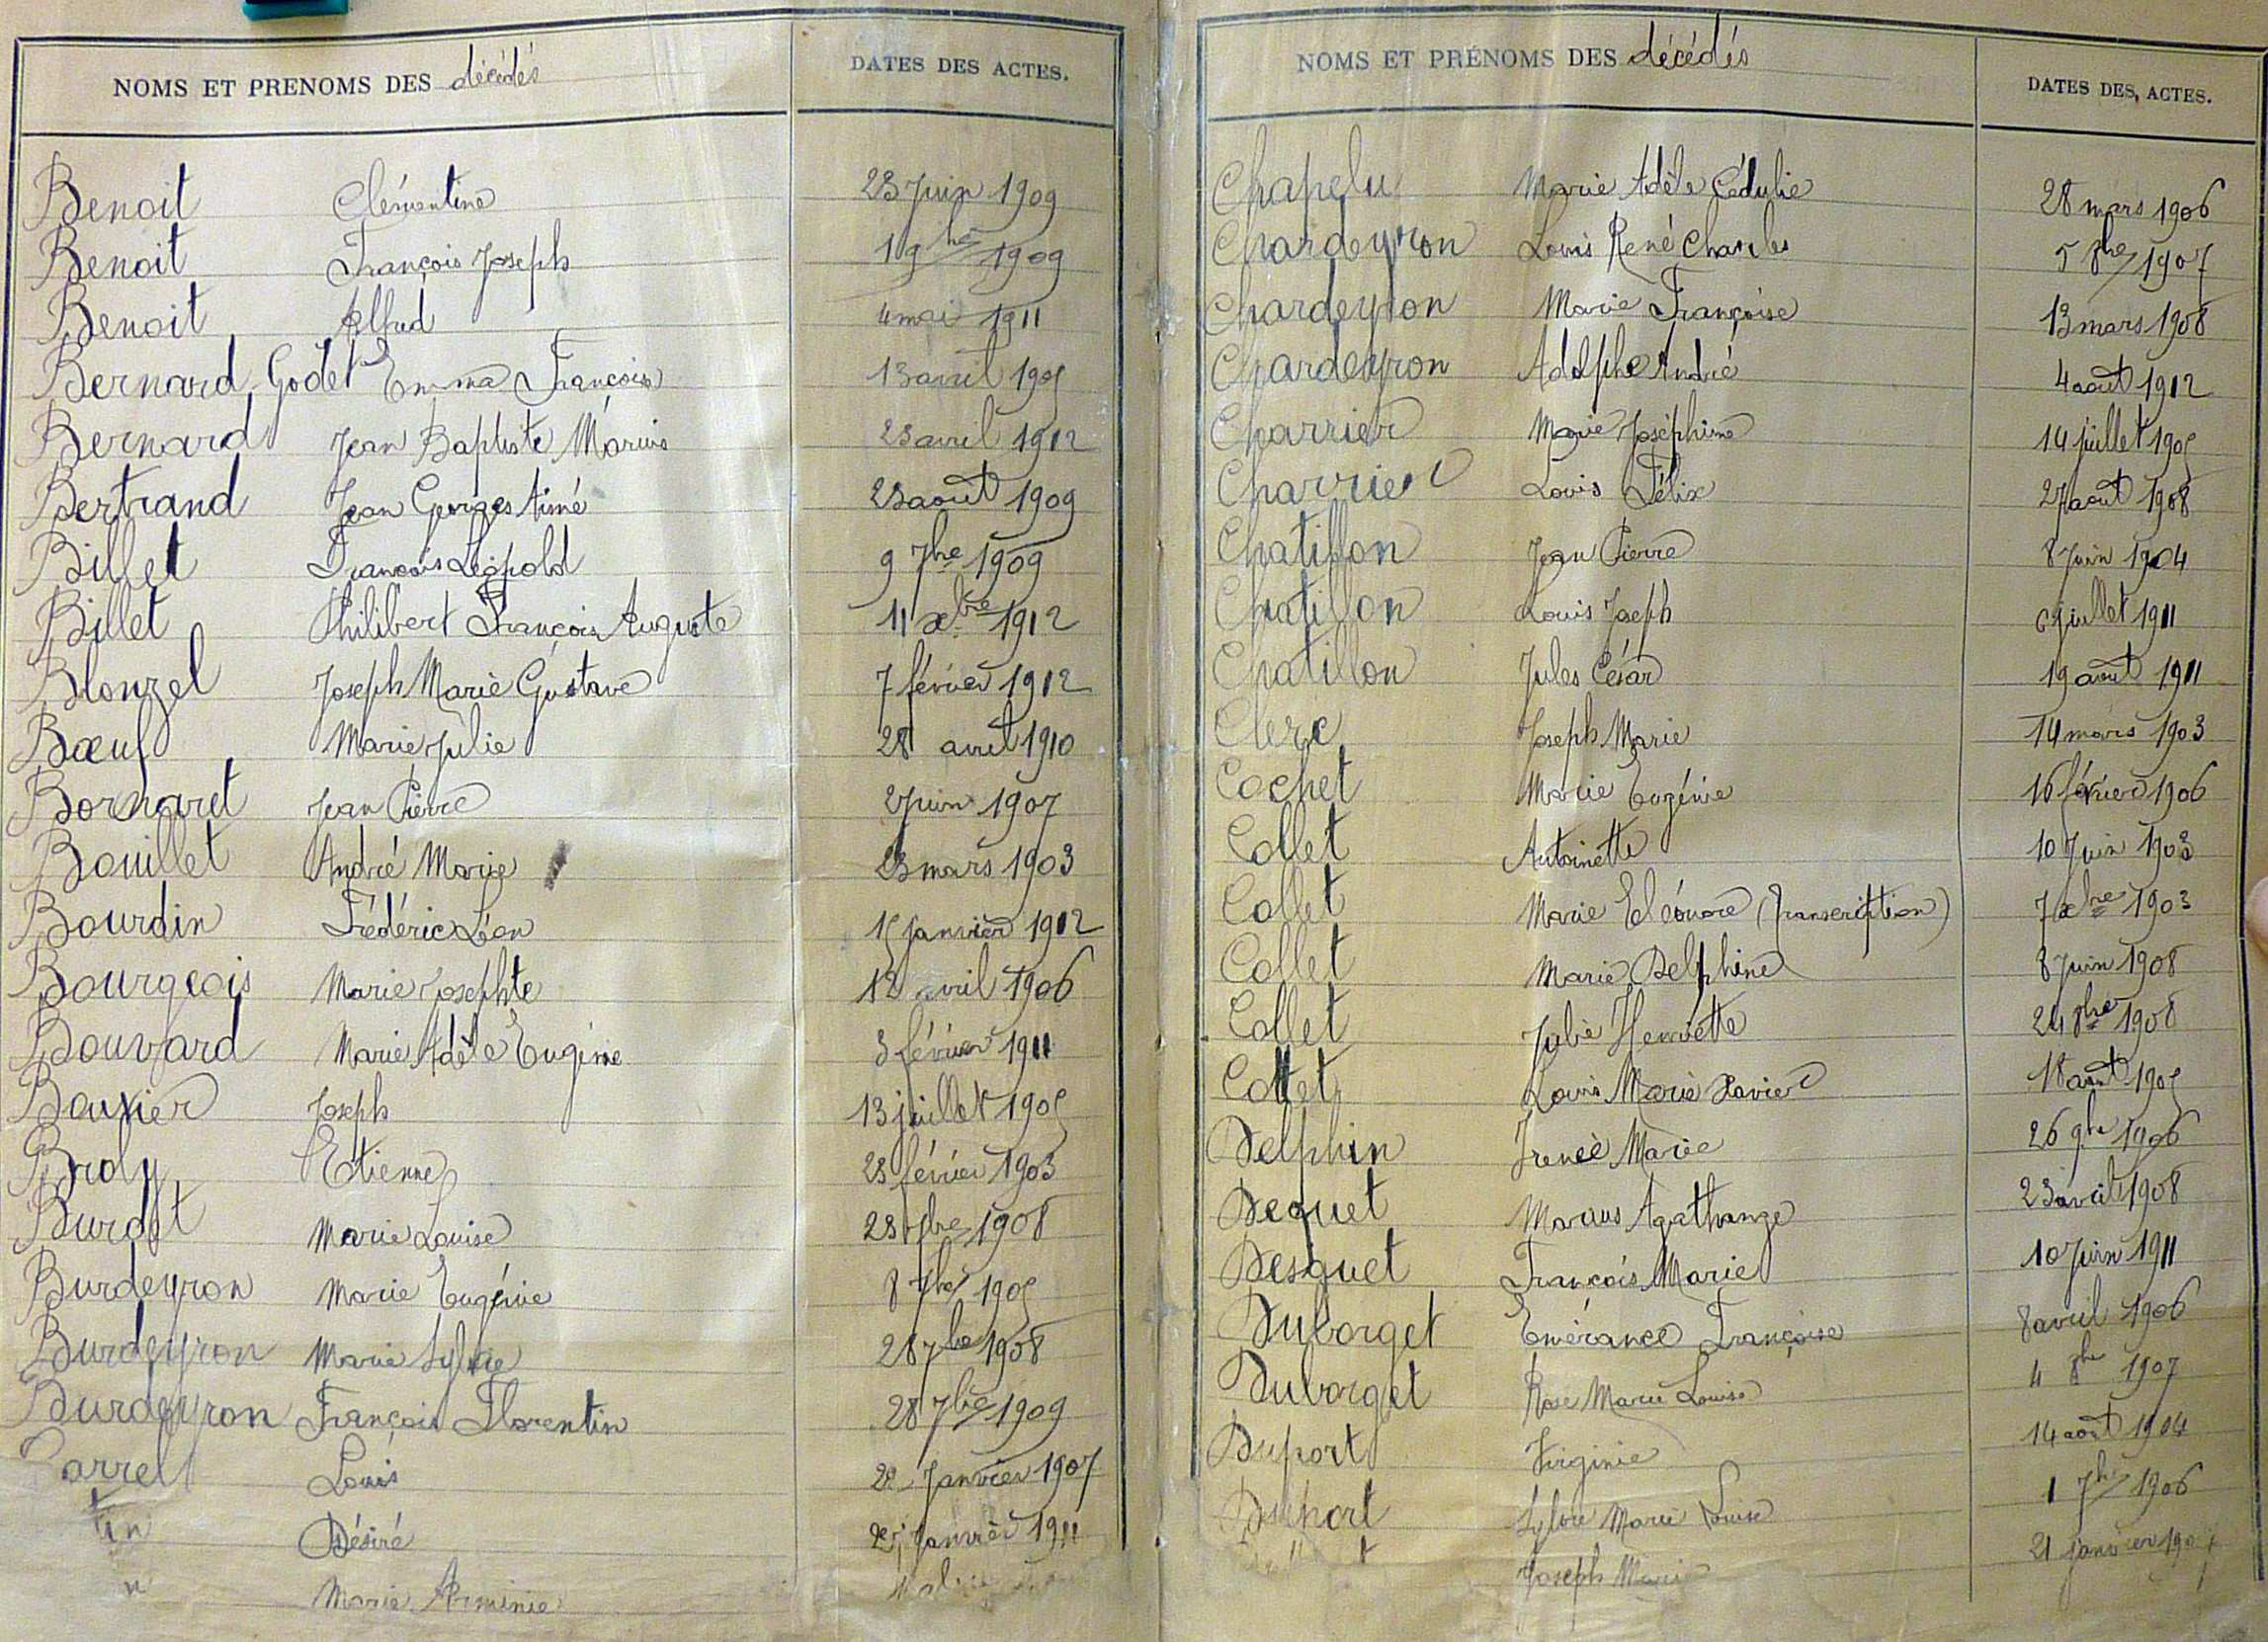 NOMS ET PRENOMS DES décédés DATES DES ACTES.
Benoit Clémentine 23 Juin 1909
Benoit François Joseph 1 9bre 1909
Benoit Alfred 4 mai 1911
Bernard Godet Emma François 13 avril 1905
Bernard Jean Baptiste Marius 23 avril 1912
Bertrand Jean Georges Aimé 23 août 1909
Billet François Léopold 9 7bre 1909
Billet Philibert François Auguste 11 xbre 1912
Blonzel Joseph Marie Gustave 7 février 1912
Bœuf Marie Julie 28 avril 1910
Bornaret Jean Pierre 2 Juin 1907
Bouillet André Marie 23 mars 1903
Bourdin Frédéric Léon 15 Janvier 1912
Bourgeois Marie Josephte 12 avril 1906
Bouvard Marie Adèle Eugénie 3 février 1911
Bouvier Joseph 13 juillet 1905
Broly Etienne 23 février 1903
Burdet Marie Louise 1908
Burdeyron Marie Eugénie 8 7bre 1905
Burdeyron Marie Sylvie 28 7bre 1908
Burdeyron François Florentin 28 7bre 1909
Carrel Louis 22 Janvier 1907
Désiré Janvier 1911
Marie Arminie
NOMS ET PRÉNOMS DES décédés DATES DES ACTES.
Chapelu Marie Adèle Cédulie 28 mars 1906
Chardeyron Louis René Charles 5 8bre 1907
Chardeyron Marie Françoise 13 mars 1908
Chardeyron Adolphe André 4 août 1912
Charrier Marie Joséphine 14 juillet 1905
Charrier Louis Félix 27 août 1908
Chatillon Jean Pierre 8 Juin 1904
Chatillon Louis Joseph 6 juillet 1911
Chatillon Jules César 19 août 1911
Clerc Joseph Marie 14 mars 1903
Cochet Marie Eugénie 16 février 1906
Collet Antoinette 10 Juin 1903
Collet Marie Eléonore (Transcription) 7 xbre 1903
Collet Marie Delphine 8 Juin 1908
Collet Julie Henriette 24 8bre 1908
Cottet Louis Marie Xavier 18 août 1905
Delphin Irenée Marie 26 9bre 1906
Dequet Marius Agathange 23 avril 1908
Desquet François Marie 10 Juin 1911
Duborget Emérance Françoise 8 avril 1906
Duborget Rose Marie Louise 4 8bre 1907
Duport Virginie 14 août 1904
Duport Sylvie Marie Louise 1 7bre 1906
Joseph Marie 21 janvier